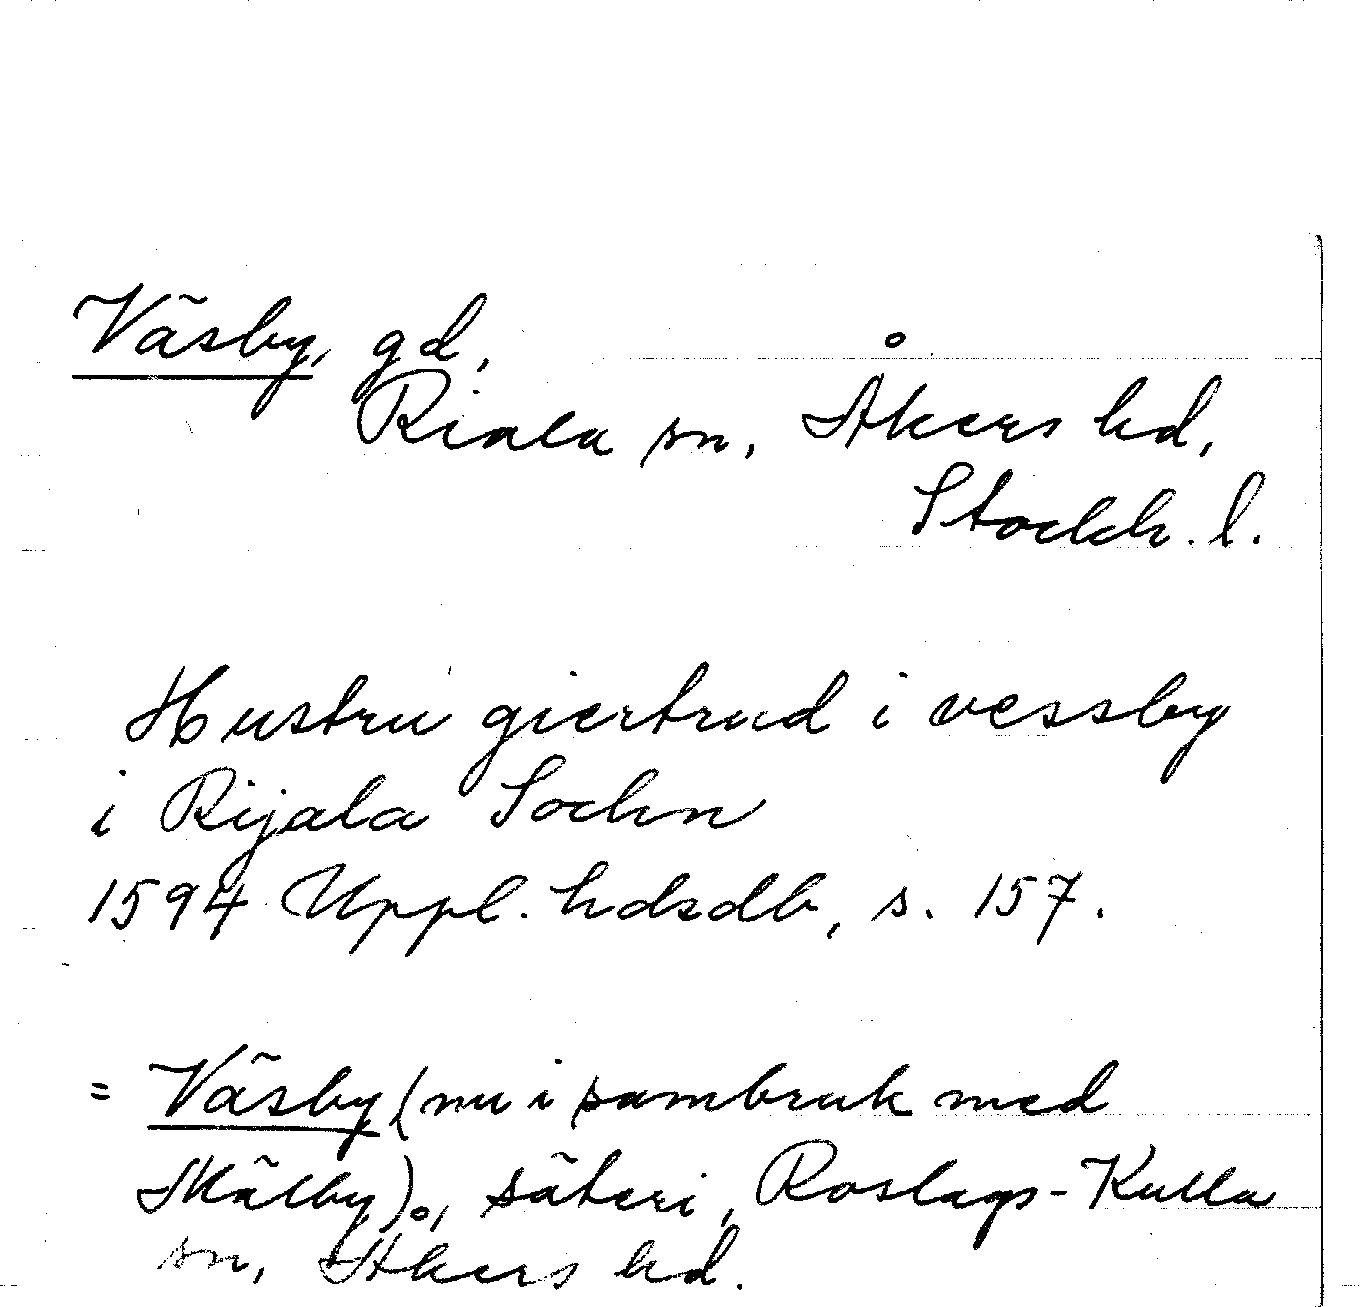 Väsby, gd,
Riala sn, Åkers hd,
Stockh. l.
Hustru giertrud i vessby
i Rijala Sochn
1594 Uppl. hdsdb, s. 157.
= Väsby (nu i sambruk med
Mälby), säteri, Roslags-Kulla
sn, Åkers hd.